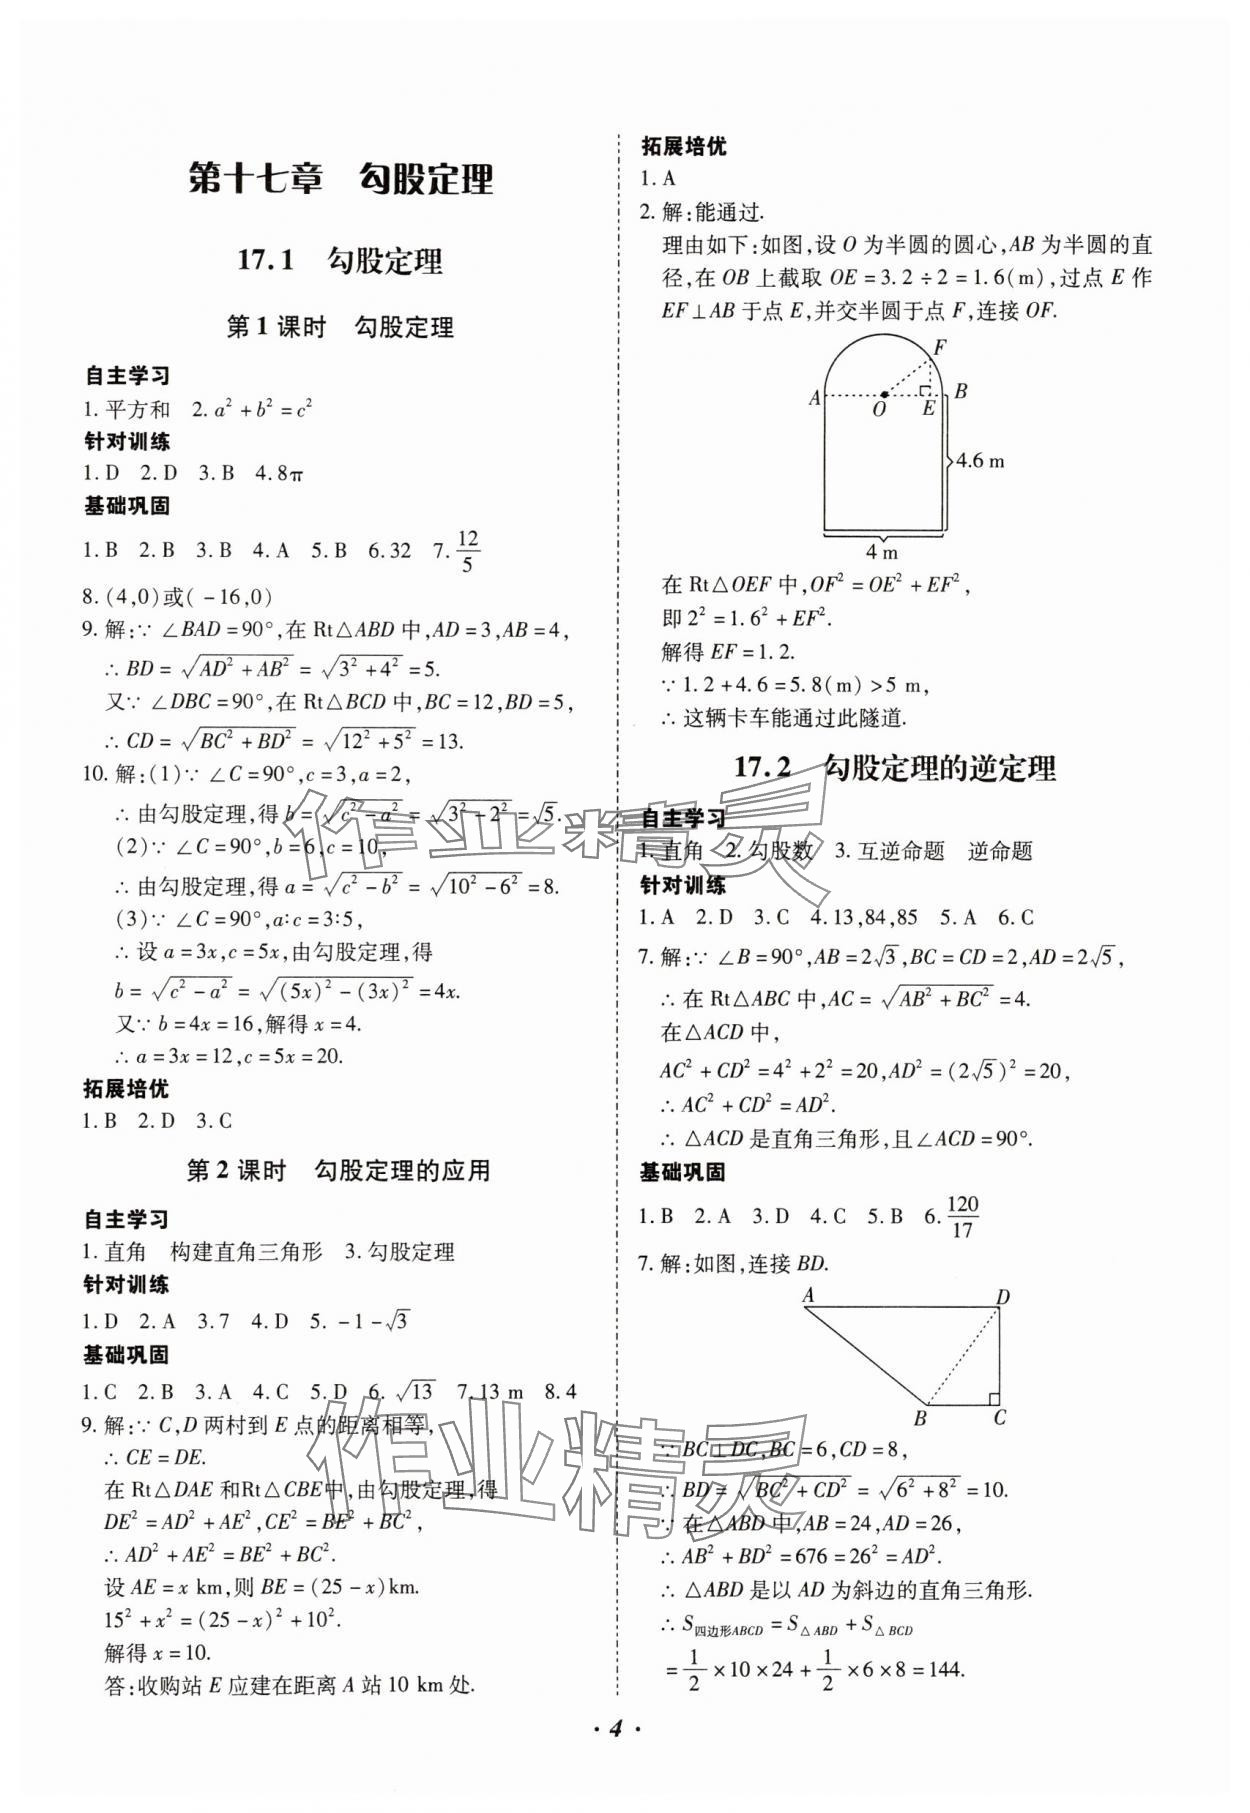 第十七章 勾股定理
17.1 勾股定理
第1课时 勾股定理
自主学习
1.平方和 2.a²+b²=c²
针对训练
1.D 2.D 3.B 4.8π
基础巩固
1.B 2.B 3.B 4.A 5.B 6.32 7.12/5
8.(4,0)或(-16,0)
9.解:∵∠BAD=90°,在Rt△ABD中,AD=3,AB=4,
∴BD=√(AD²+AB²)=√(3²+4²)=5.
又∵∠DBC=90°,在Rt△BCD中,BC=12,BD=5,
∴CD=√(BC²+BD²)=√(12²+5²)=13.
10.解:(1)∵∠C=90°,c=3,a=2,
∴由勾股定理,得b=√(c²-a²)=√(3²-2²)=√5.
(2)∵∠C=90°,b=6,c=10,
∴由勾股定理,得a=√(c²-b²)=√(10²-6²)=8.
(3)∵∠C=90°,a:c=3:5,
∴设a=3x,c=5x,由勾股定理,得
b=√(c²-a²)=√((5x)²-(3x)²)=4x.
又∵b=4x=16,解得x=4.
∴a=3x=12,c=5x=20.
拓展培优
1.B 2.D 3.C
第2课时 勾股定理的应用
自主学习
1.直角 构建直角三角形 3.勾股定理
针对训练
1.D 2.A 3.7 4.D 5.-1-√3
基础巩固
1.C 2.B 3.A 4.C 5.D 6.√13 7.13 m 8.4
9.解:∵C,D两村到E点的距离相等,
∴CE=DE.
在Rt△DAE和Rt△CBE中,由勾股定理,得
DE²=AD²+AE²,CE²=BE²+BC²,
∴AD²+AE²=BE²+BC².
设AE=x km,则BE=(25-x)km.
15²+x²=(25-x)²+10².
解得x=10.
答:收购站E应建在距离A站10 km处.
拓展培优
1.A
2.解:能通过.
理由如下:如图,设O为半圆的圆心,AB为半圆的直
径,在OB上截取OE=3.2÷2=1.6(m),过点E作
EF⊥AB于点E,并交半圆于点F,连接OF.
F
A
O
E
B
4.6 m
4 m
在Rt△OEF中,OF²=OE²+EF²,
即2²=1.6²+EF².
解得EF=1.2.
∵1.2+4.6=5.8(m)>5 m,
∴这辆卡车能通过此隧道.
17.2 勾股定理的逆定理
自主学习
1.直角 2.勾股数 3.互逆命题 逆命题
针对训练
1.A 2.D 3.C 4.13,84,85 5.A 6.C
7.解:∵∠B=90°,AB=2√3,BC=CD=2,AD=2√5,
∴在Rt△ABC中,AC=√(AB²+BC²)=4.
在△ACD中,
AC²+CD²=4²+2²=20,AD²=(2√5)²=20,
∴AC²+CD²=AD².
∴△ACD是直角三角形,且∠ACD=90°.
基础巩固
1.B 2.A 3.D 4.C 5.B 6.120/17
7.解:如图,连接BD.
A
D
B
C
∵BC⊥DC,BC=6,CD=8,
∴BD=√(BC²+CD²)=√(6²+8²)=10.
∵在△ABD中,AB=24,AD=26,
∴AB²+BD²=676=26²=AD².
∴△ABD是以AD为斜边的直角三角形.
∴S四边形ABCD=S△ABD+S△BCD
=1/2×10×24+1/2×6×8=144.
·4·
作业精灵
作业精灵